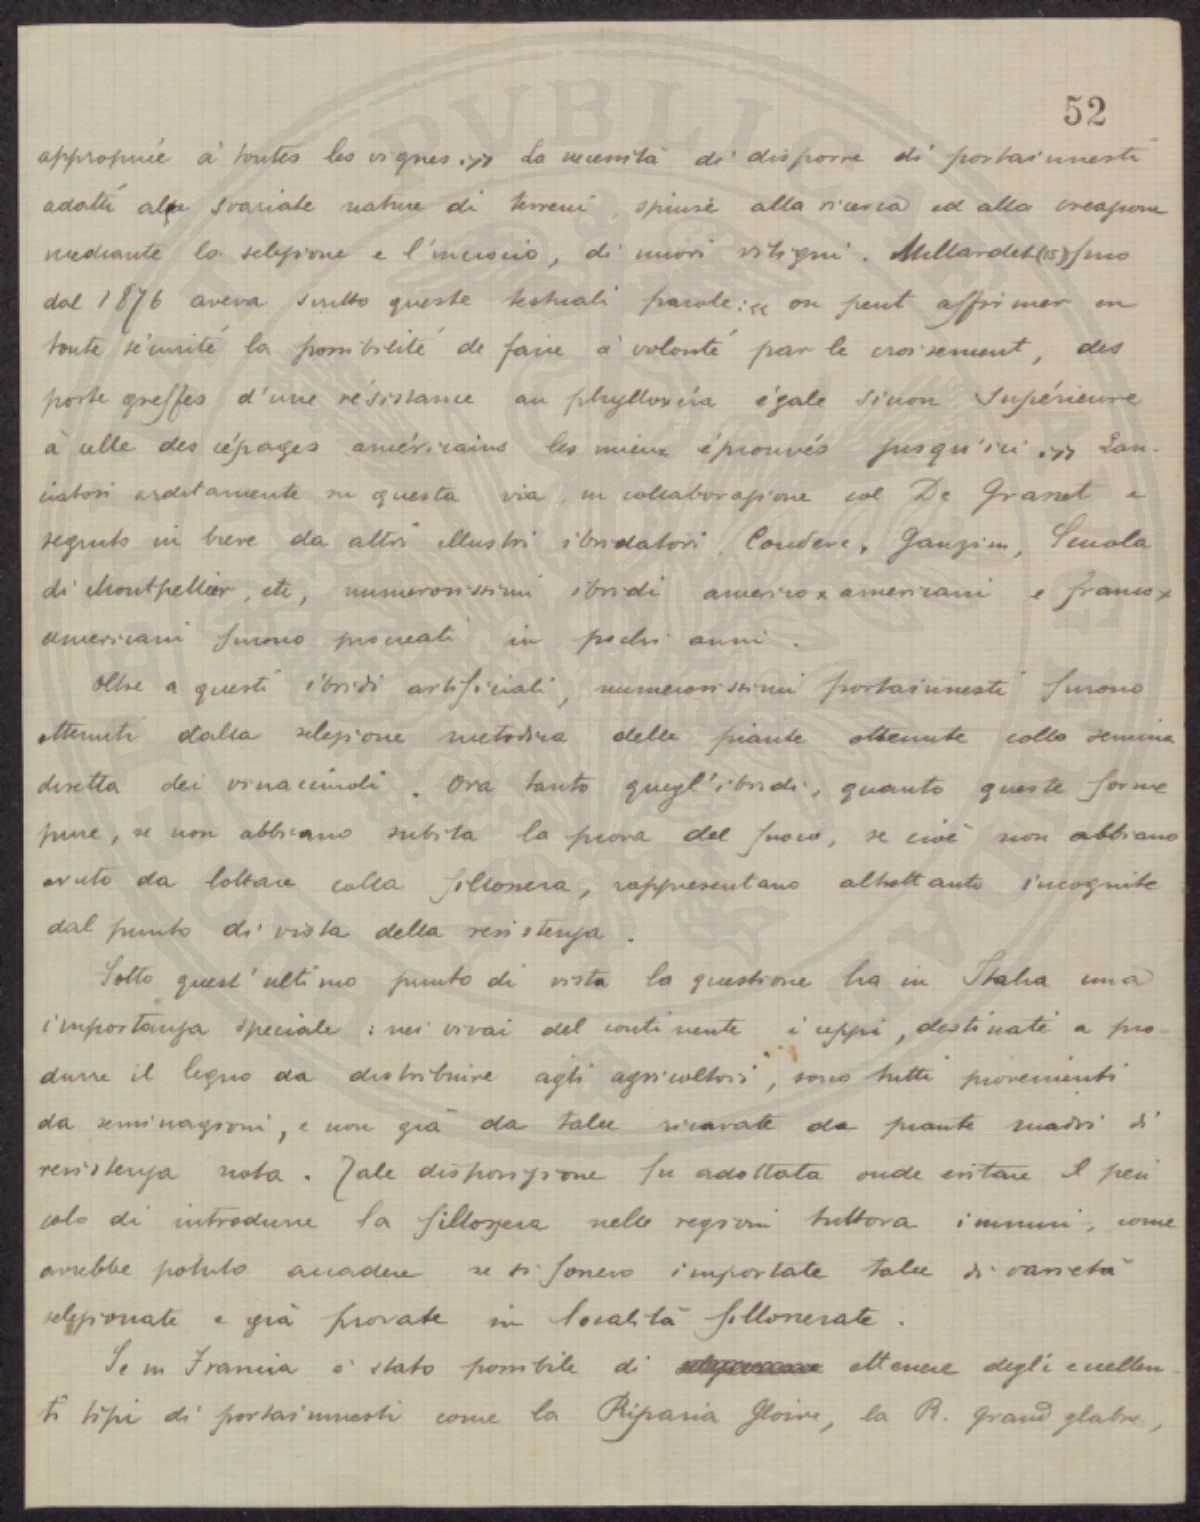 52
appropriée à toutes les vignes. » La necessità di disporre di portainnesti
adatti alle svariate nature di terreni, spinse alla ricerca ed alla creazione
mediante la selezione e l'incrocio, di nuovi vitigni. Millardet (15) fino
dal 1876 aveva scritto queste testuali parole: « on peut affirmer en
toute sécurité la possibilité de faire à volonté par le croisement, des
porte greffes d'une résistance au phylloxéra égale sinon supérieure
à celle des cépages américains les mieux éprouvés jusqu'ici. » Lan-
ciatosi arditamente su questa via, in collaborazione col De Grasset e
seguito in breve da altri illustri ibridatori, Couderc, Ganzin, Scuola
di Montpellier, etc, numerosissimi ibridi americo x americani e franco x
americani furono procreati in pochi anni.
Oltre a questi ibridi artificiali, numerosissimi portainnesti furono
ottenuti dalla selezione metodica delle piante ottenute colla semina
diretta dei vinaccinoli. Ora tanto quegl'ibridi, quanto queste forme
pure, se non abbiano subita la prova del fuoco, se cioè non abbiano
avuto da lottare colla fillossera, rappresentano altrettante incognite
dal punto di vista della resistenza.
Sotto quest'ultimo punto di vista la questione ha in Italia una
importanza speciale: nei vivai del continente i ceppi, destinati a pro-
durre il legno da distribuire agli agricoltori, sono tutti provenienti
da seminagioni, e non già da talee ricavate da piante madri di
resistenza nota. Tale disposizione fu adottata onde evitare il peri
colo di introdurre la fillossera nelle regioni tuttora immuni, come
avrebbe potuto accadere se si fossero importate talee di varietà
selezionate e già provate in località fillosserate.
Se in Francia è stato possibile di ottenere degli eccellen-
ti tipi di portainnesti come la Riparia Gloire, la R. Grand glabre,